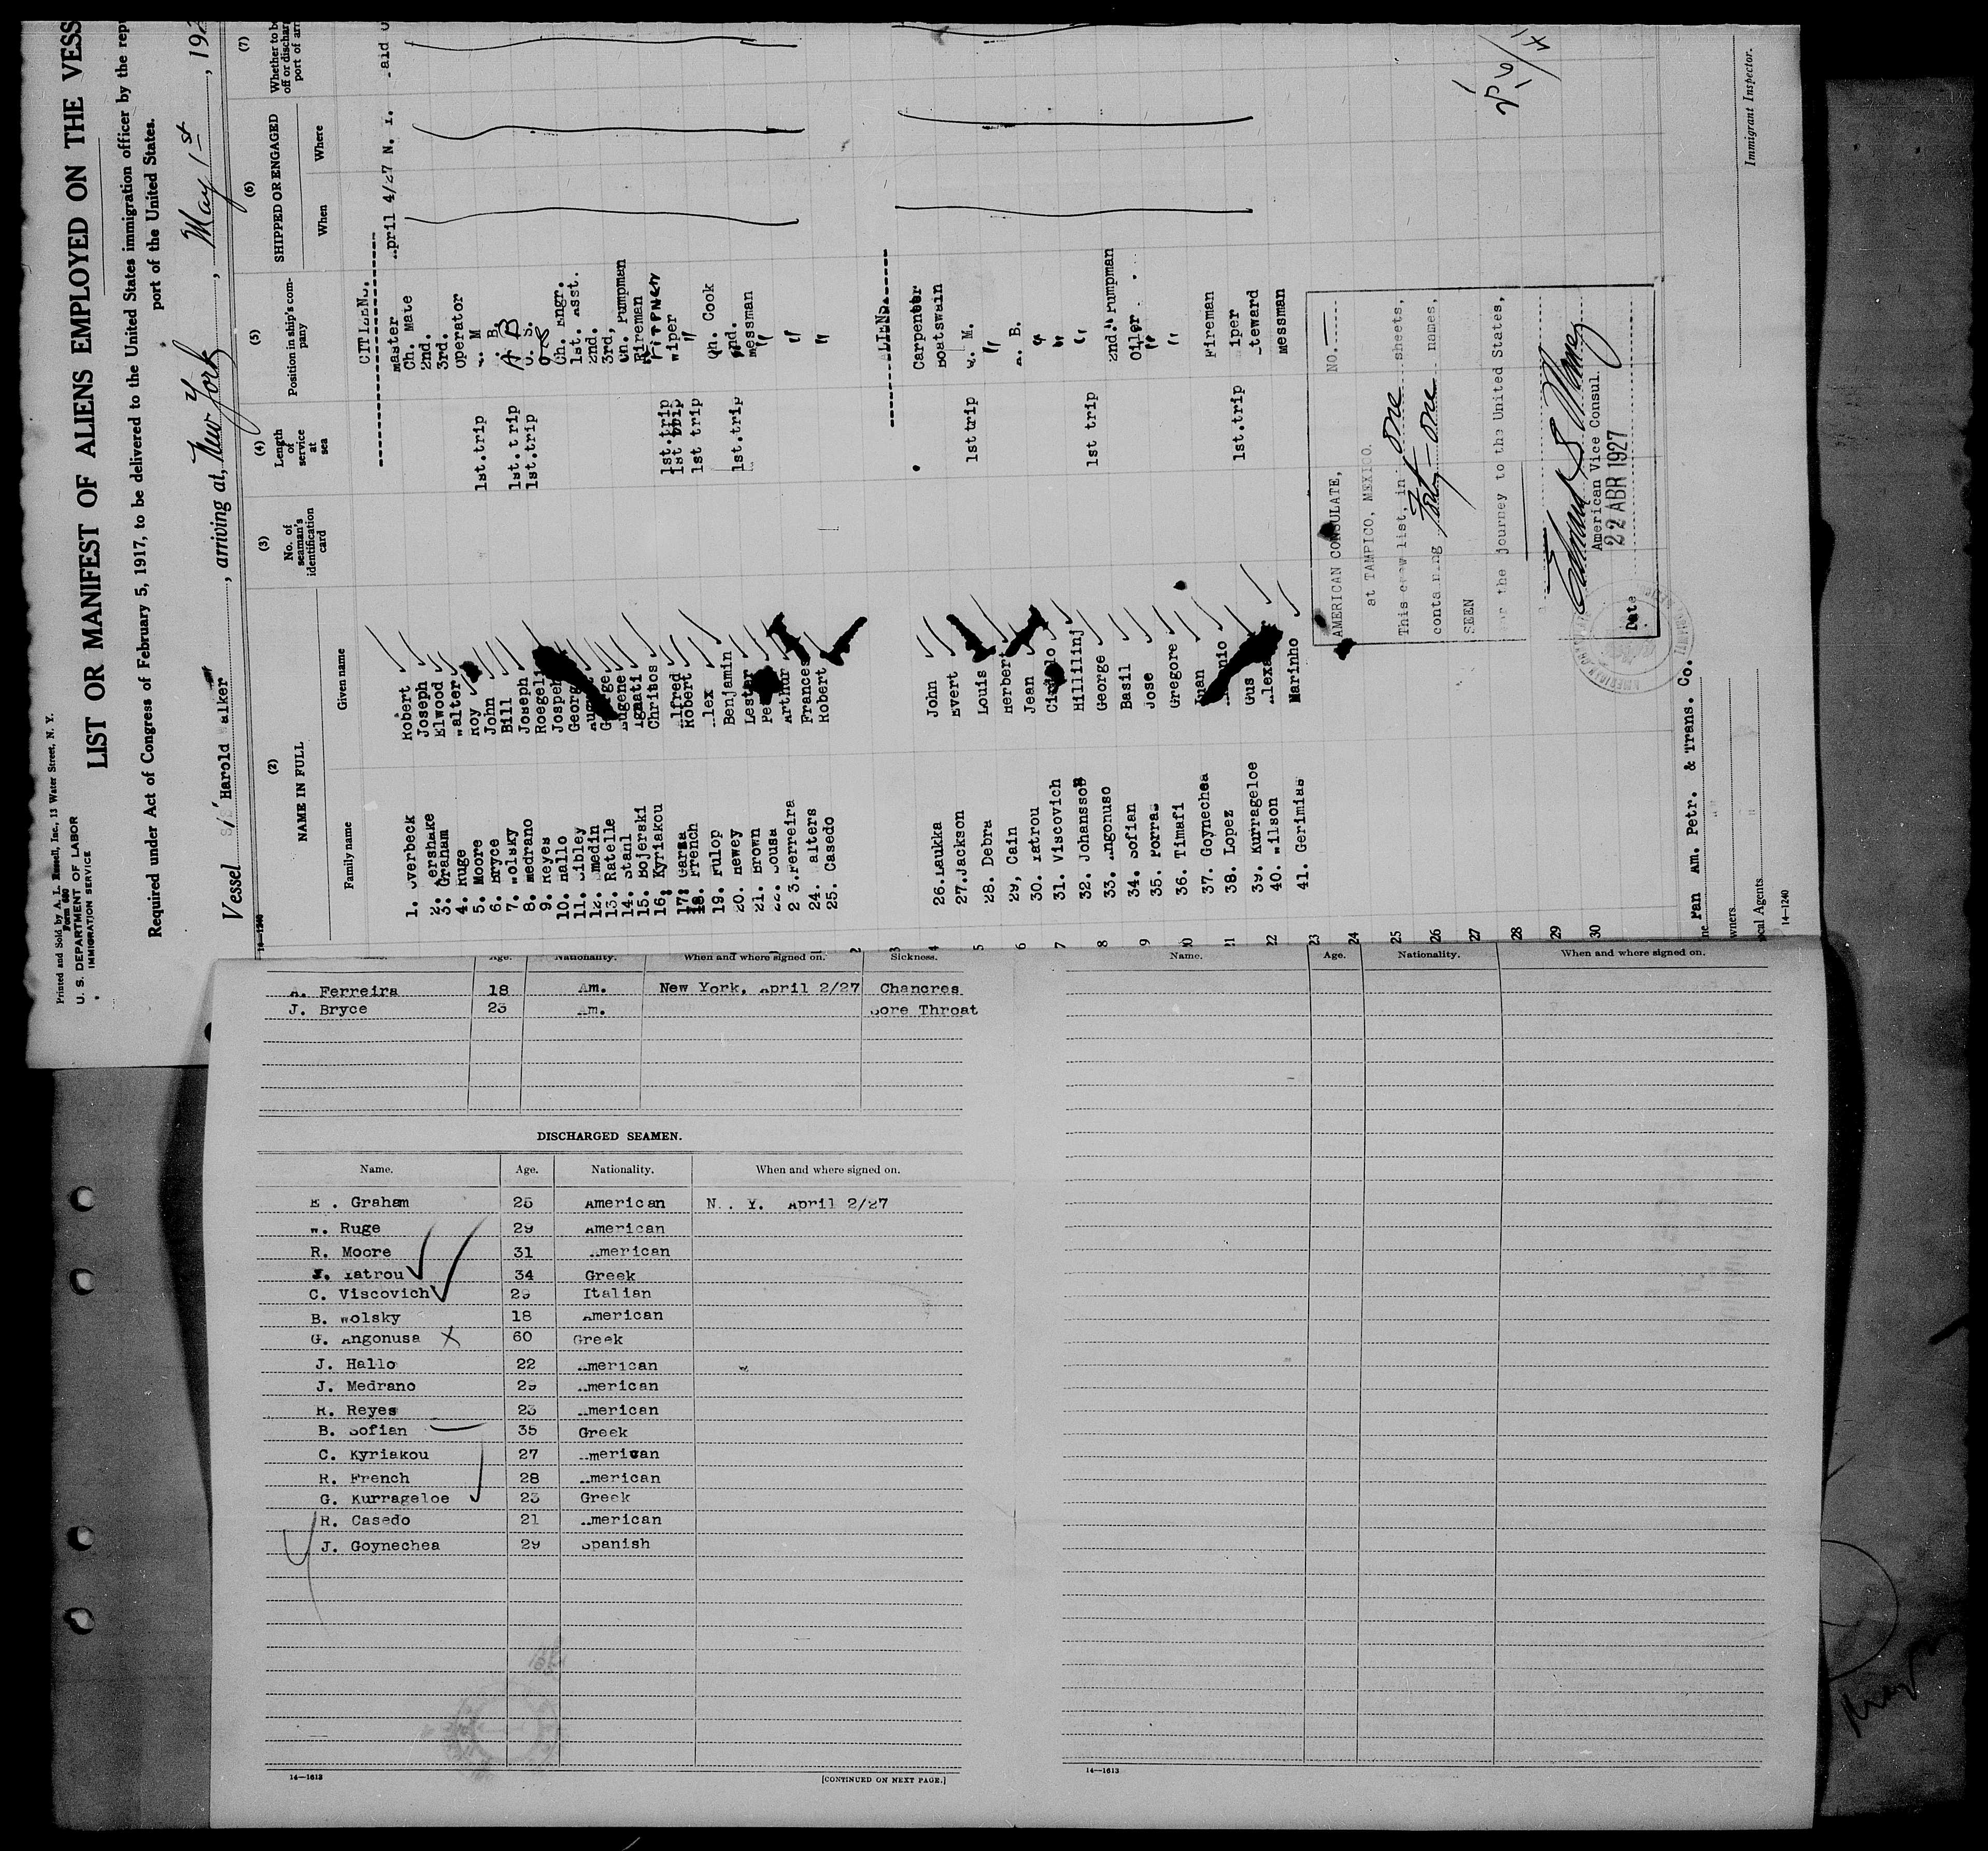 Printed and Sold by A. L. Russell, Inc., 13 Water Street, N. Y.
Form 680
U. S. DEPARTMENT OF LABOR
IMMIGRATION SERVICE
LIST OR MANIFEST OF ALIENS EMPLOYED ON THE VESS
Required under Act of Congress of February 5, 1917, to be delivered to the United States immigration officer by the rep
port of the United States.
Vessel S/S Harold Walker, arriving at, New York, May 1st, 192
14—1240
(2) (3) (4) (5) (6) (7)
NAME IN FULL
Family name Given name
No. of seaman's identification card
Length of service at sea
Position in ship's company
SHIPPED OR ENGAGED
When Where
Whether to b
off or dischar
port of arr
CITIZENS.
1. Overbeck Robert Master April 4/27 N. Y.
2. Kershake Joseph Ch. Mate
3. Graham Elwood 2nd.
4. Ruge Walter 3rd.
5. Moore Roy Operator
6. Bryce John 1st.trip M
7. Wolsky Bill B.
8. Medrano Joseph 1st.trip A B
9. Reyes Roegeli 1st.trip O. S.
10. Hallo Joseph Ch. Engr.
11. Sibley George 1st. Asst.
12. Smedin 2nd.
13. Ratelle 3rd,
14. Stanl Eugene Ch. Pumpman
15. Bojerski Ignati Fireman
16. Kyriakou Christos
17. Garza Alfred 1st.trip Wiper
18. French Robert 1st trip "
19. Fulop Alex 1st trip Ch. Cook
20. Hewey Benjamin 2nd.
21. Brown Lester 1st.trip Messman
22. Sousa "
2 3.Ferreira Arthur
24. Walters Frances "
25. Casedo Robert "
ALIENS.
26.Laukka John Carpenter
27.Jackson Evert Boatswain
28. Debra Louis 1st trip M.
29, Cain Herbert "
30. Yatrou Jean A. B.
31. Viscovich "
32. Johansson Hillinj "
33. Angonuso George 1st trip "
34. Sofian Basil 2nd. Pumpman
35. Porras Jose Oiler
36. Timafi Gregore "
37. Goynechea Juan "
38. Lopez Fireman
39. Kurrageloe Gus 1st.trip Wiper
40. Wilson Steward
41. Gerimias Marinho Messman
23
24
25
26
27
28
29
30
AMERICAN CONSULATE, NO.
at TAMPICO, MEXICO.
This crew list, in One sheets,
containing Forty-one names,
SEEN
for the journey to the United States,
American Vice Consul.
Date 22 ABR 1927
Pan Am. Petr. & Trans. Co.
Immigrant Inspector.
14—1240
Age. Nationality. When and where signed on. Sickness.
A. Ferreira 18 Am. New York, April 2/27 Chancres
J. Bryce 23 Am. Sore Throat
DISCHARGED SEAMEN.
Name. Age. Nationality. When and where signed on.
E . Graham 25 American N. Y. April 2/27
W. Ruge 29 American
R. Moore 31 American
Yatrou 34 Greek
C. Viscovich 29 Italian
B. Wolsky 18 American
G. Angonusa 60 Greek
J. Hallo 22 American
J. Medrano 29 American
R. Reyes 23 American
B. Sofian 35 Greek
C. Kyriakou 27 American
R. French 28 American
G. Kurrageloe 23 Greek
R. Casedo 21 American
J. Goynechea 29 Spanish
14—1613
[CONTINUED ON NEXT PAGE.]
Name. Age. Nationality. When and where signed on.
14—1613